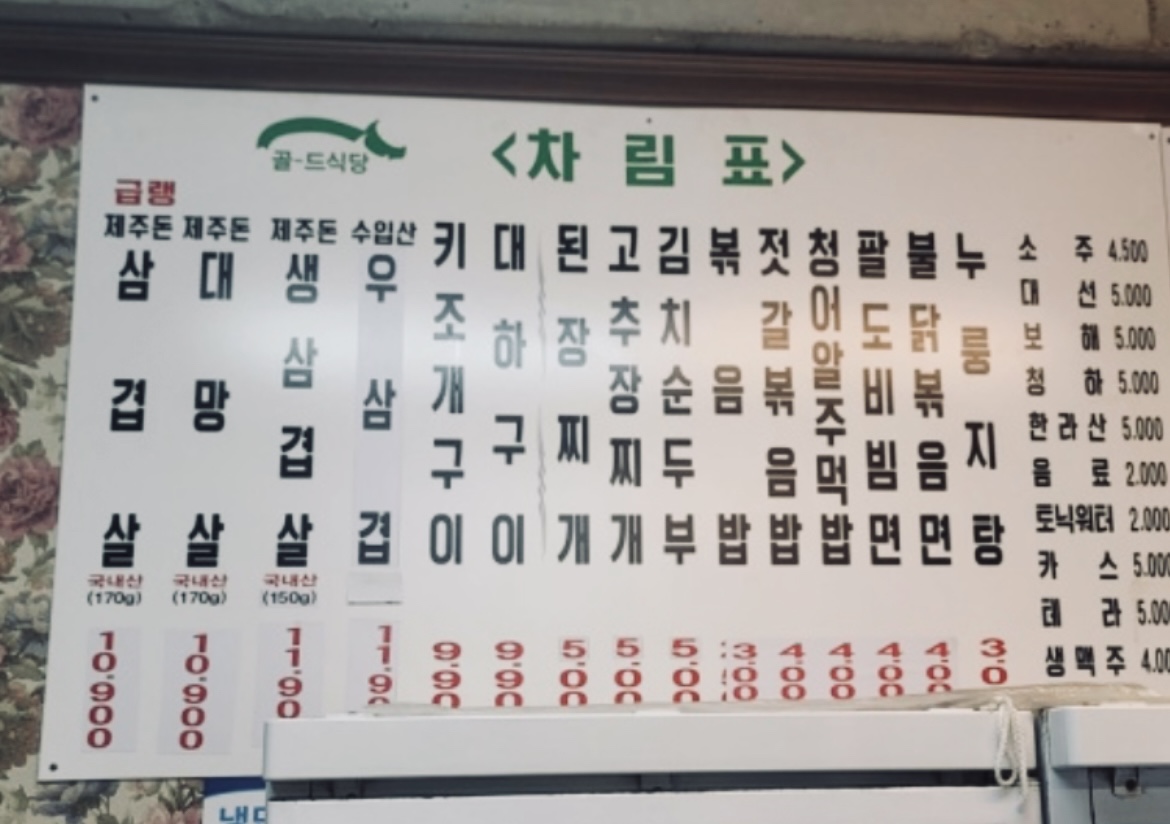 골-드식당
<차림표>
급랭
제주돈 삼겹살 국내산 (170g) 10.900
제주돈 대망살 국내산 (170g) 10.900
제주돈 생삼겹살 국내산 (150g) 11.90
수입산 우삼겹 11.9
키조개구이 9.90
대하구이 9.90
된장찌개 5.00
고추장찌개 5.00
김치순두부 5.00
볶음밥 3.00
젓갈볶음밥 4.00
청어알주먹밥 4.00
팔도비빔면 4.00
불닭볶음면 4.00
누룽지탕 3.0
소주 4.500
대선 5.000
보해 5.000
청하 5.000
한라산 5.000
음료 2.000
토닉워터 2.000
카스 5.000
테라 5.00
생맥주 4.00